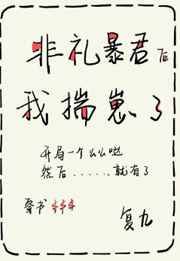 非礼暴君后
我揣崽了
开局一个么么哒
然后......就有了
复九